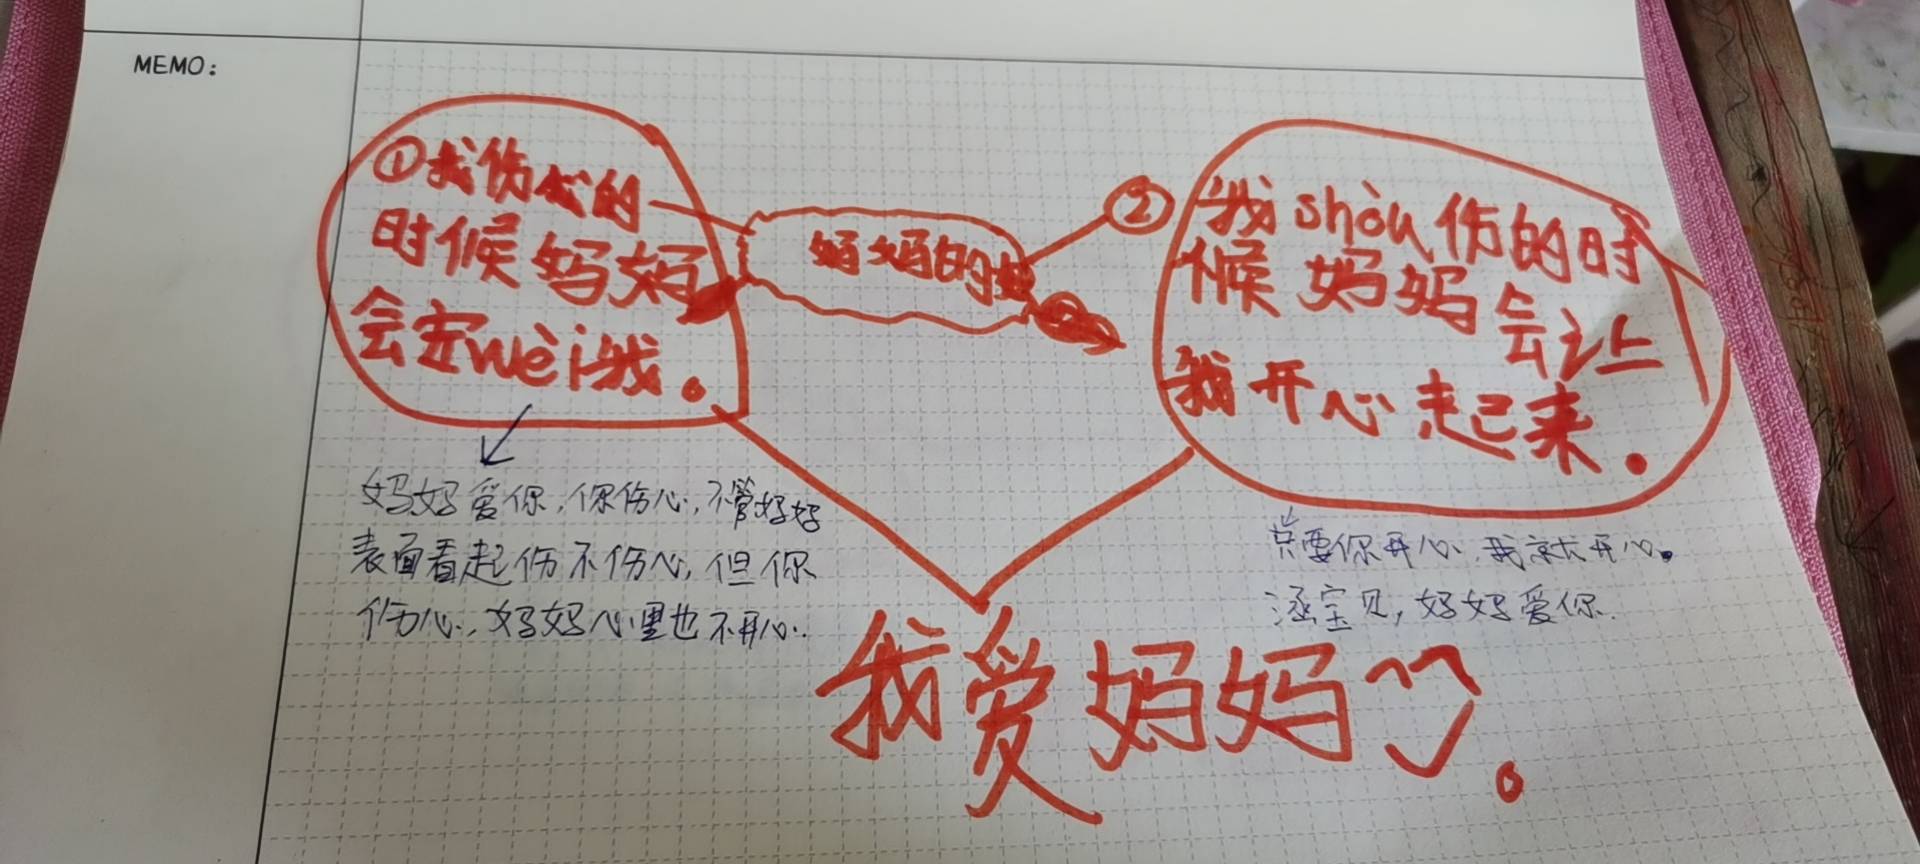 MEMO:
①我伤心的
时候妈妈
会安wèi我。
妈妈的
②
我shòu伤的时
候妈妈会让
我开心起来。
妈妈爱你,你伤心,不管妈妈
表面看起伤不伤心,但你
伤心,妈妈心里也不开心.
只要你开心,我就开心。
涵宝贝,妈妈爱你.
我爱妈妈。